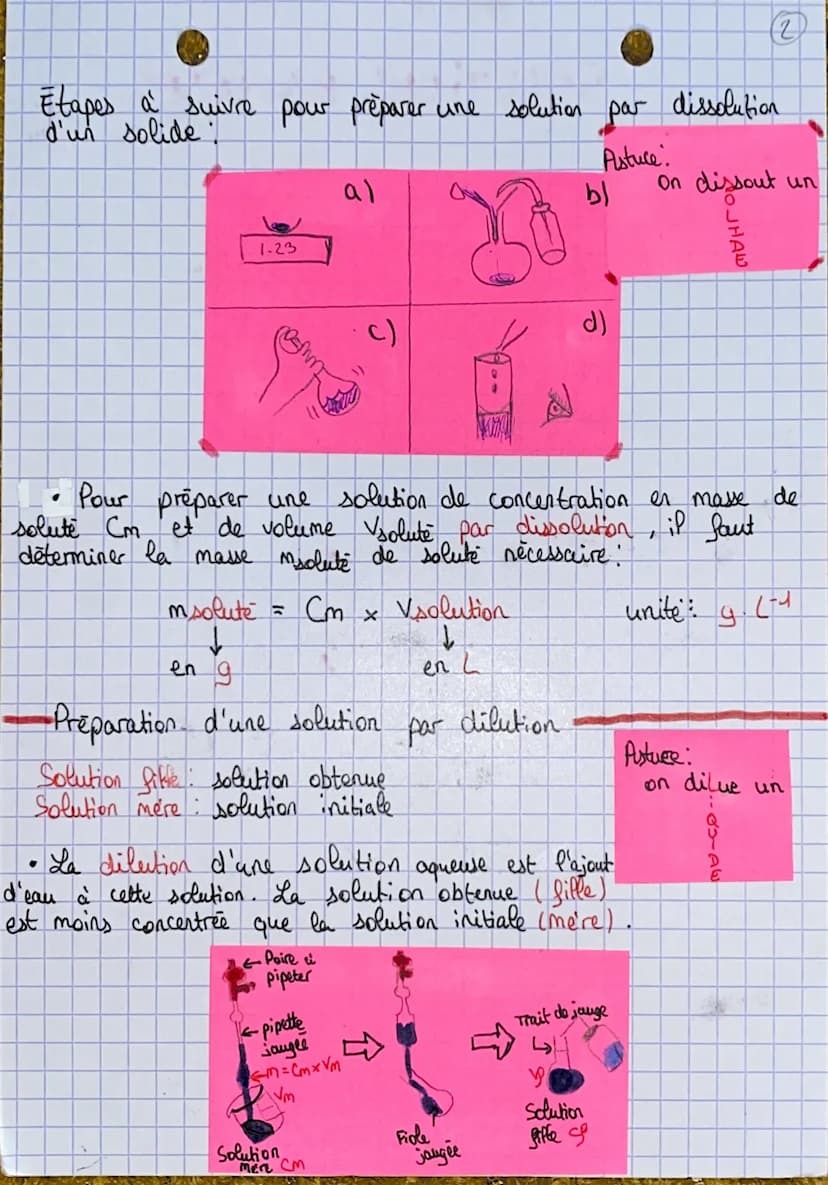 2
Etapes à suivre pour préparer une solution par dissolution
d'un solide :
Astuce :
on dissout un
SOLIDE
a)
1.23
b)
c)
d)
• Pour préparer une solution de concentration en masse de
soluté Cm et de volume Vsoluté par dissolution, il faut
déterminer la masse msoluté de soluté nécessaire :
msoluté = Cm x Vsolution unité : g.L-1
en g en L
Préparation d'une solution par dilution
Solution fille : solution obtenue
Solution mère : solution initiale
Astuce :
on dilue un
LIQUIDE
• La dilution d'une solution aqueuse est l'ajout
d'eau à cette solution. La solution obtenue (fille)
est moins concentrée que la solution initiale (mère).
← Poire à
pipeter
← pipette
jaugée
← m = Cm x Vm
Vm
Solution
mère Cm
Fiole
jaugée
Trait de jauge
Vf
Solution
fille Cf